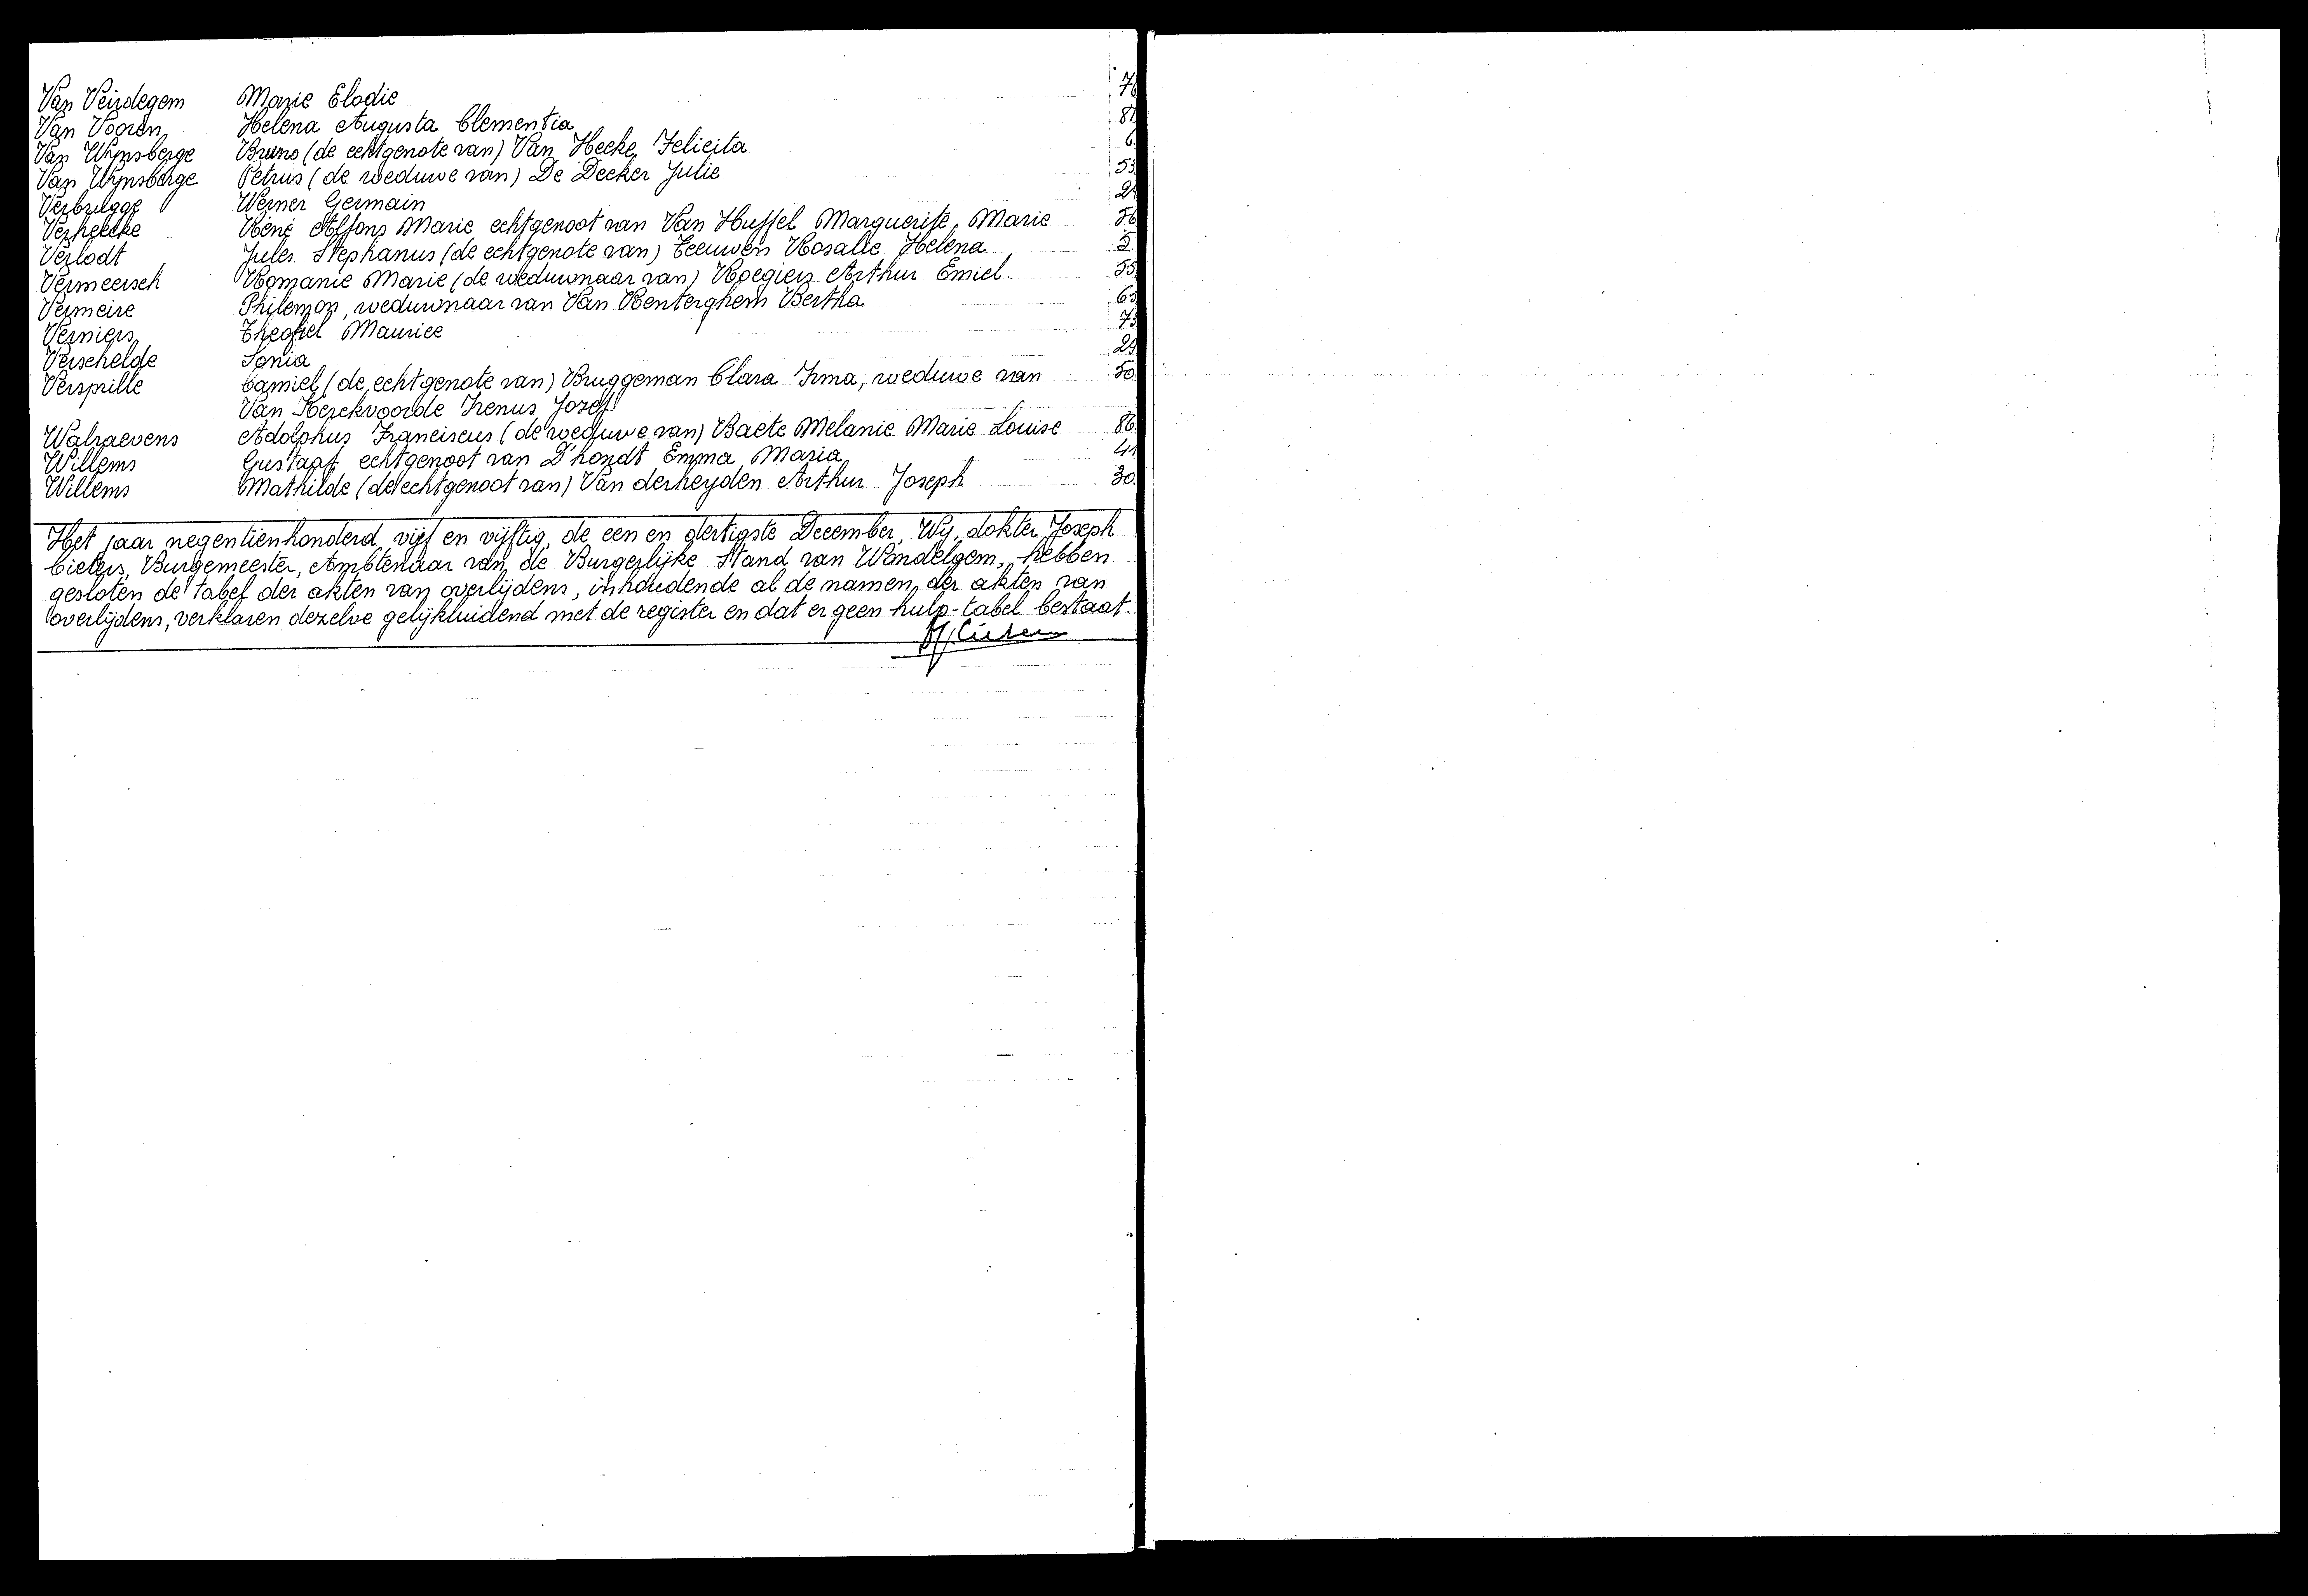 Van Veirdegem Marie Elodie 76
Van Vooren Helena Augusta Clementia 81
Van Wynsberge Bruno (de echtgenote van) Van Hecke Felicita 6
Van Wynsberge Petrus (de weduwe van) De Decker Julie 53
Verbrugge Werner Germain
Verheecke René Alfons Marie echtgenoot van Van Huffel Marguerite, Marie 56
Verlodt Jules Stephanus (de echtgenote van) Teeuwen Rosalie Helena 5
Vermeersch Romanie Marie (de weduwnaar van) Roegiers Arthur Emiel 55
Vermeire Philemon, weduwnaar van Van Renterghem Bertha 63
Verniers Theofiel Maurice
Verschelde Sonia
Versprille Camiel (de echtgenote van) Bruggeman Clara Irma, weduwe van 50
Van Kerckvoorde Irenus Jozef
Walraevens Adolphus Franciscus (de weduwe van) Baete Melanie Marie Louise 86
Willems Gustaaf echtgenoot van D'hondt Emma Maria 41
Willems Mathilde (de echtgenoot van) Van derheyden Arthur Joseph 30
Het jaar negentienhonderd vijf en vijftig, de een en dertigste December, Wy, dokter Joseph
Cieters, Burgemeester, Ambtenaar van de Burgerlijke Stand van Wondelgem, hebben
gesloten de tabel der akten van overlijdens, inhoudende al de namen der akten van
overlijdens, verklaren dezelve gelijkluidend met de register en dat er geen hulp-tabel bestaat.